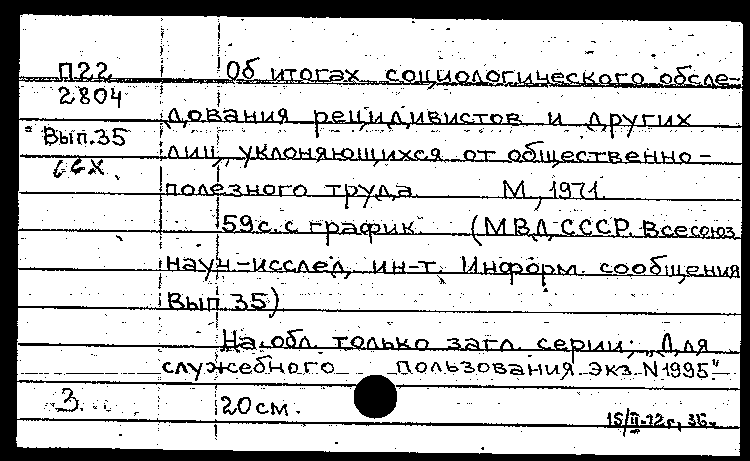 П22 Об итогах социологического обсле-
2804
дования рецидивистов и других
Вып.35
лиц, уклоняющихся от общественно-
полезного труда М., 1971.
59с. с график. (МВД СССР. Всесоюз.
науч-исслед. ин-т. Информ. сообщения
Вып 35)
На обл. только загл. серии; „Для
служебного пользования. Экз. N 1995."
3. 20см.
15/II-72г.,